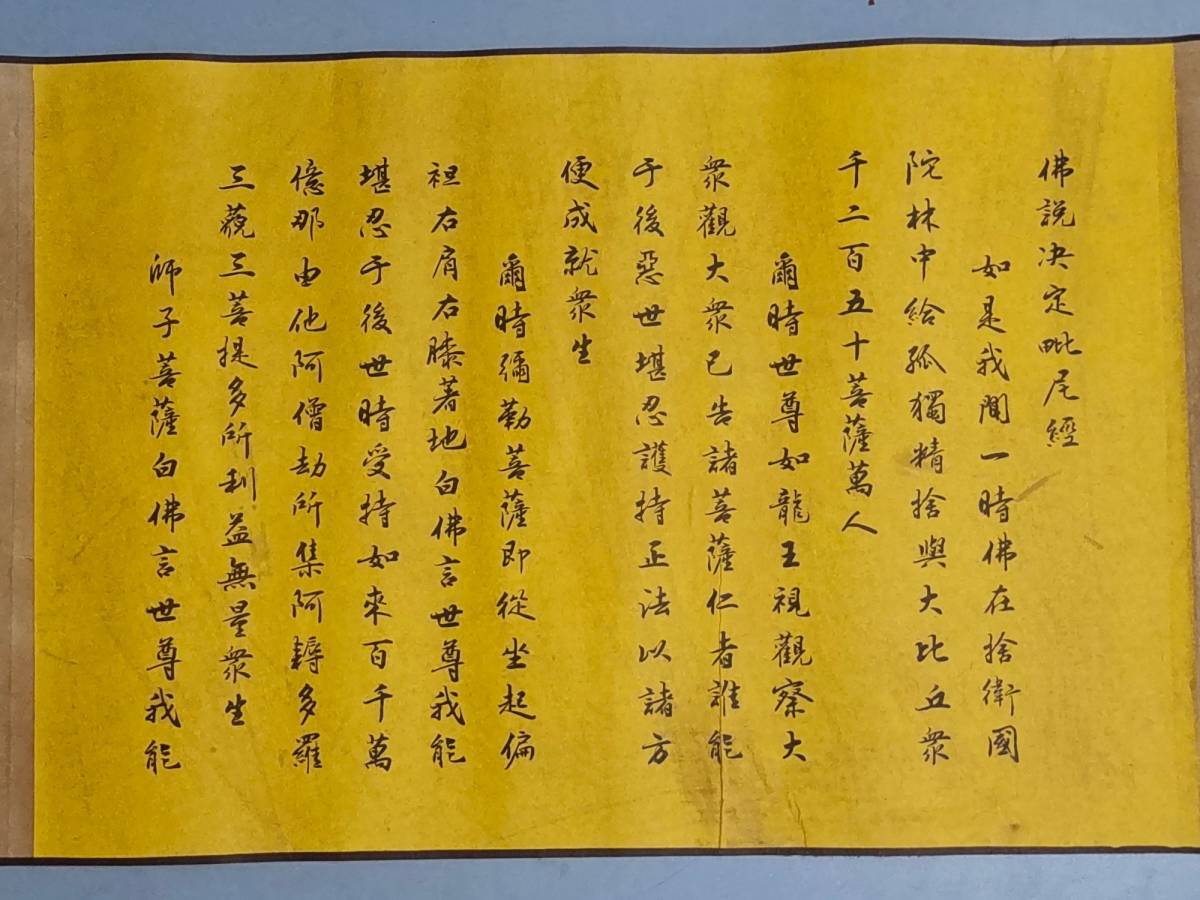 佛說决定毗尼經
如是我聞一時佛在捨衛國
陀林中給孤獨精捨與大比丘衆
千二百五十菩薩萬人
爾時世尊如龍王視觀察大
衆觀大衆已告諸菩薩仁者誰能
于後惡世堪忍護持正法以諸方
便成就衆生
爾時彌勒菩薩即從坐起偏
袒右肩右膝著地白佛言世尊我能
堪忍于後世時受持如來百千萬
億那由他阿僧劫所集阿耨多羅
三藐三菩提多所利益無量衆生
師子菩薩白佛言世尊我能